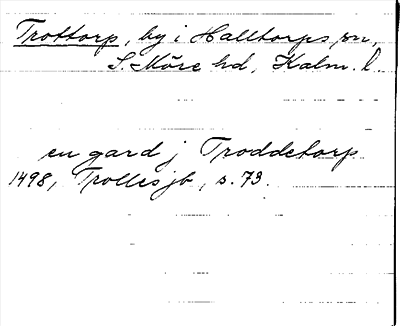 Trottorp, by i Halltorps sn,
S. Möre hd, Kalm. l.
en gard j Troddetorp
1498, Trolles jb, s. 73.